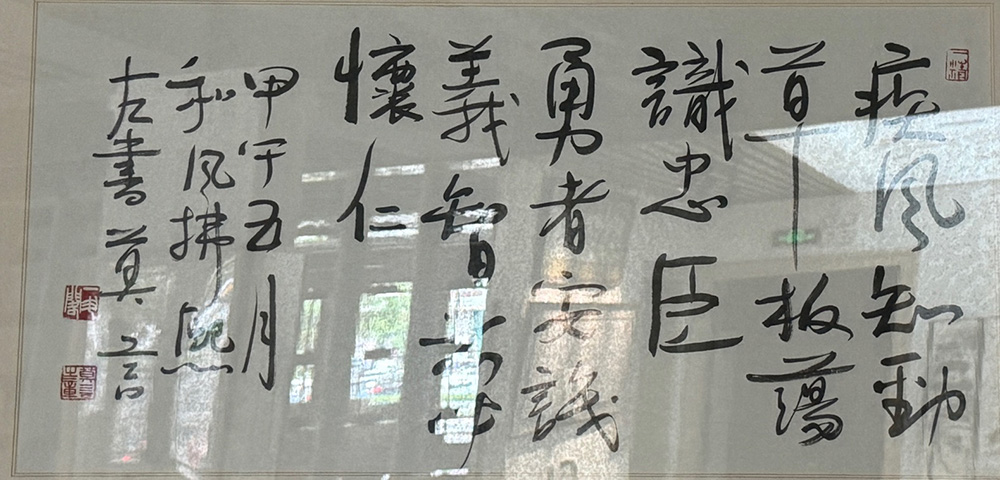 疾風知勁
草板蕩
識忠臣
勇者安識
義智者必
懷仁
甲午五月
和風拂熙
左書莫言